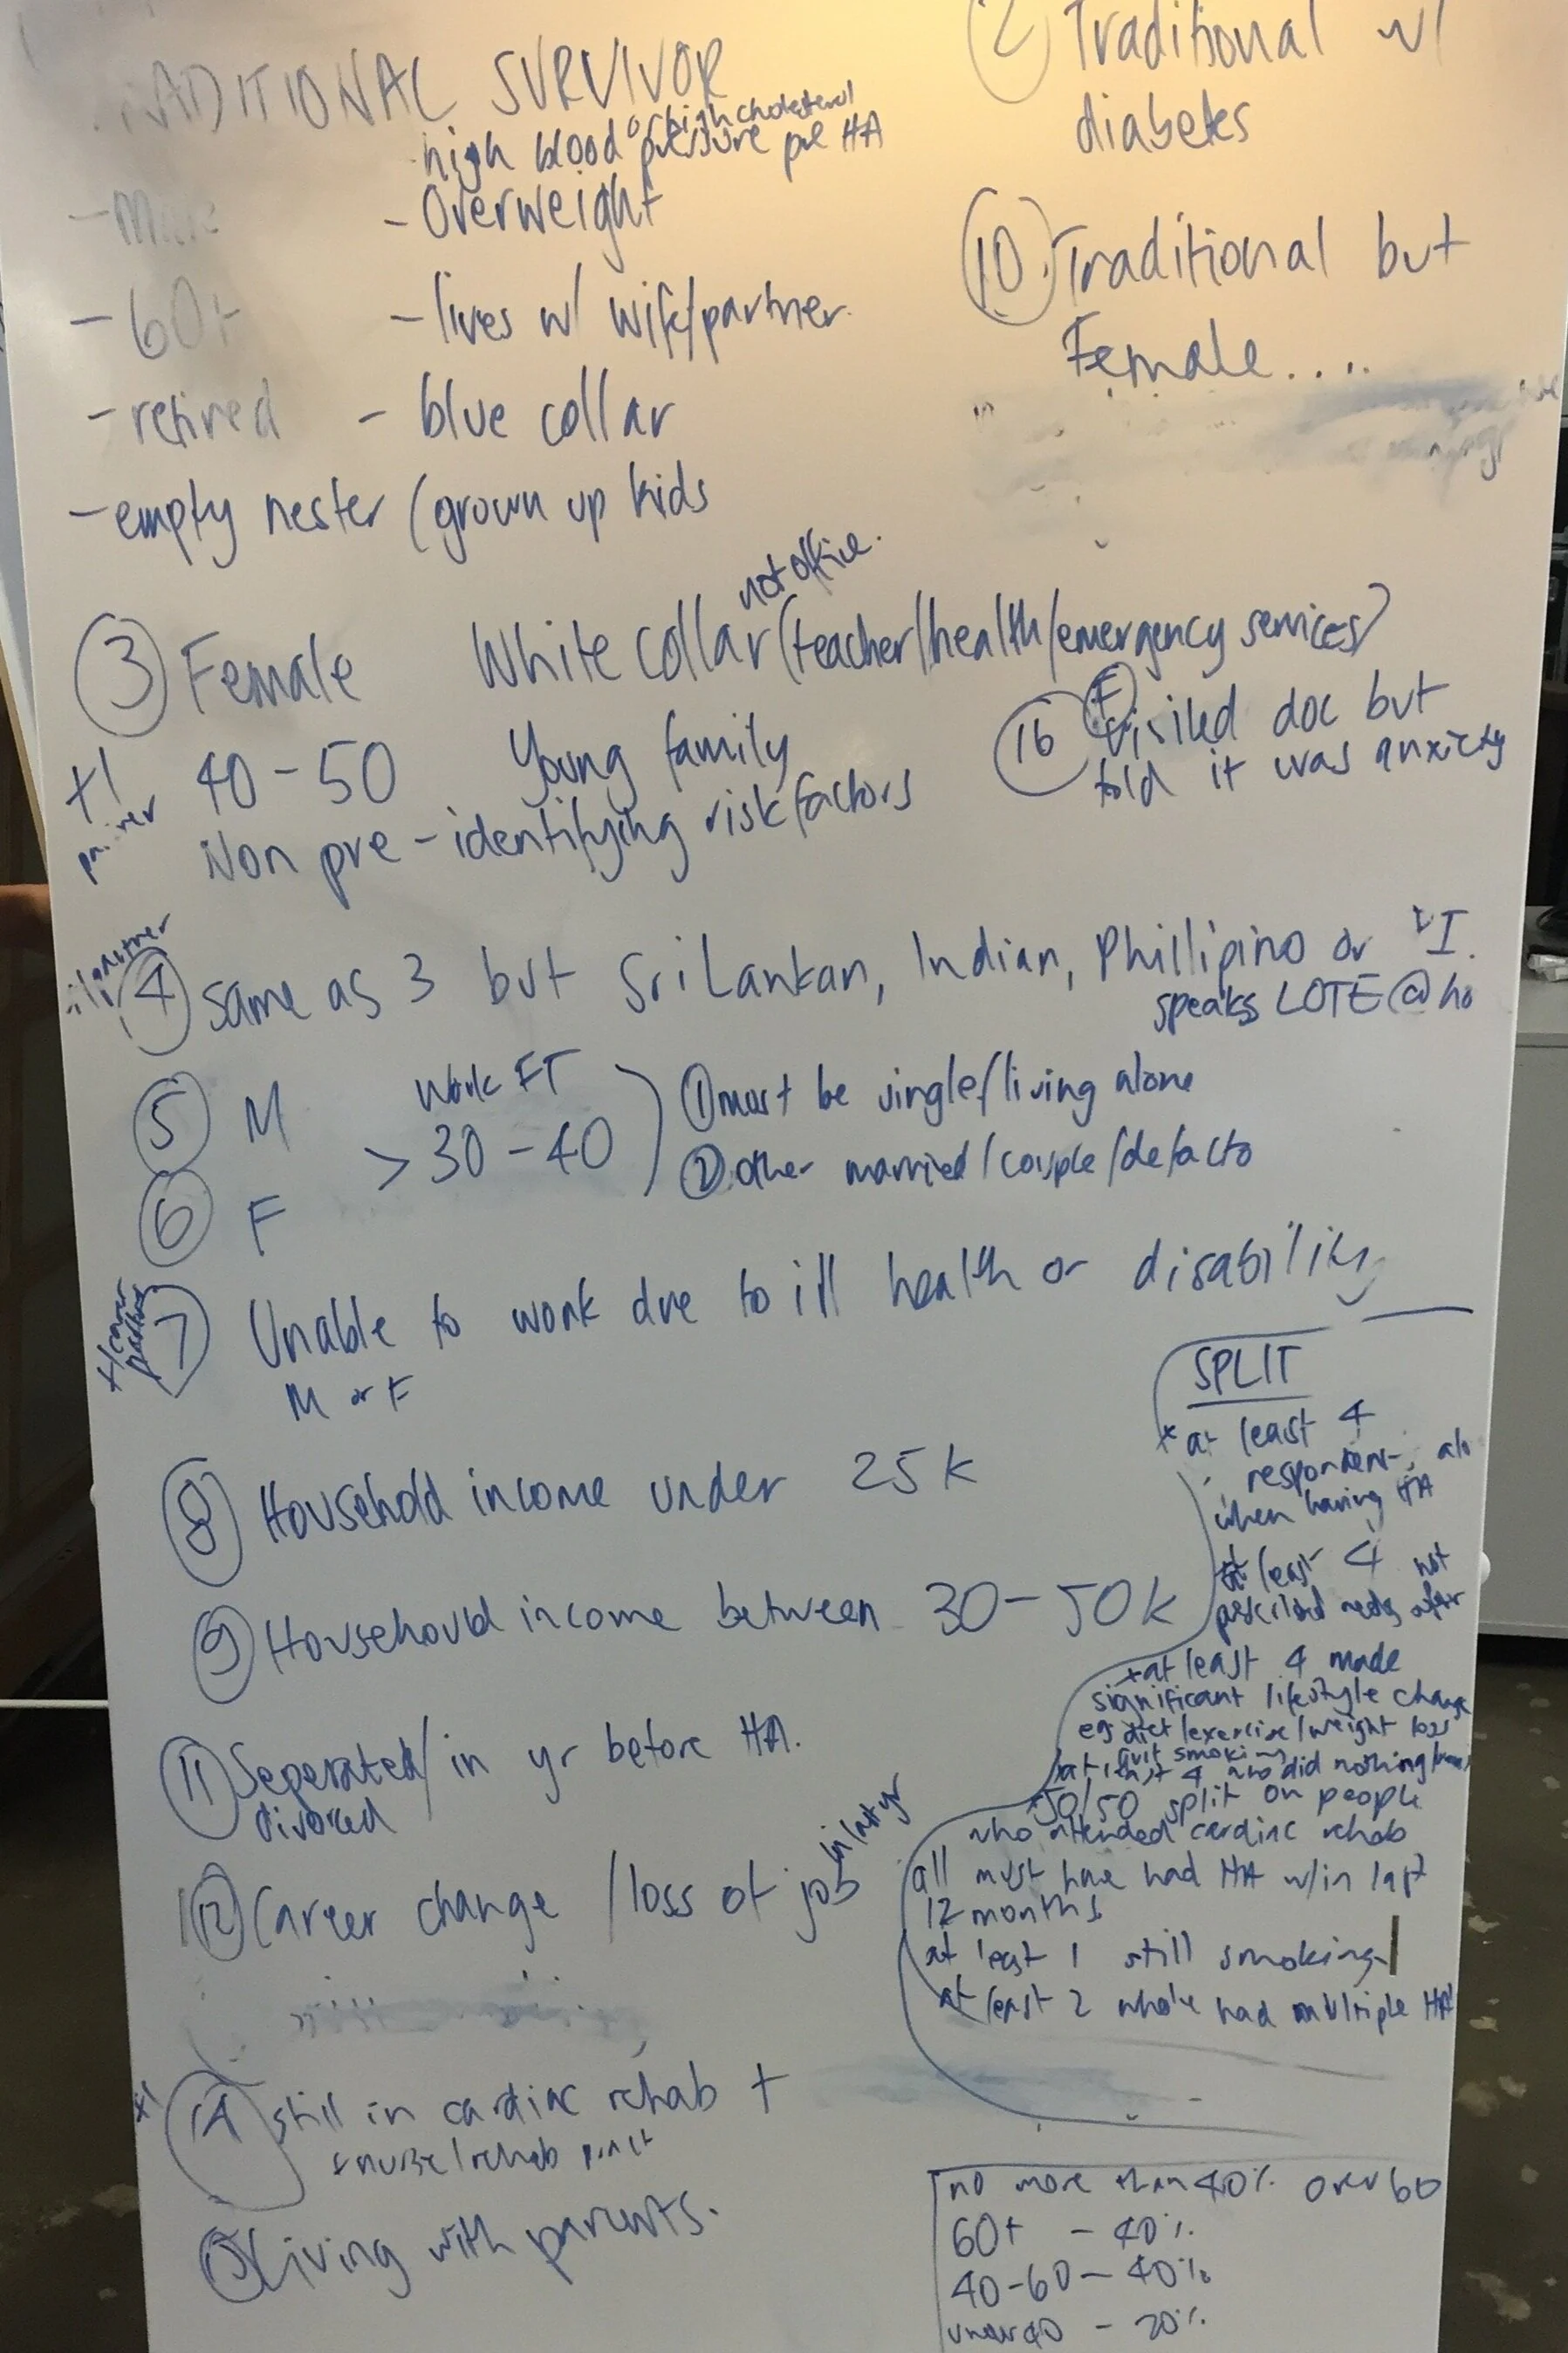 TRADITIONAL SURVIVOR
or high cholesterol
high blood pressure pre HA
- Male
- Overweight
- 60+
- lives w/ wife/partner
- retired
- blue collar
- empty nester (grown up kids
2 Traditional w/
diabetes
10 Traditional but
Female....
3 Female
White collar (teacher/health/emergency services)
not office.
+1 partner
40-50
Young family
Non pre-identifying risk factors
16 F visited doc but
told it was anxiety
+1 partner
4 same as 3 but Sri Lankan, Indian, Phillipino or
speaks LOTE @ ho
5 M
6 F
Work FT
> 30-40
1 must be single/living alone
2 other married/couple/defacto
+/carer
partner
7 Unable to work due to ill health or disability
M or F
8 Household income under 25k
9 Househould income between 30-50k
11 Seperated/ in yr before HA.
divorced
12 Career change /loss of job
in last yr
+1
14 still in cardiac rehab +
nurse/rehab
Living with parents.
SPLIT
* at least 4
respondents
when having HA
at least 4 not
meds after
+at least 4 made
significant lifestyle change
eg diet/exercise/weight loss
quit smoking
at least 4 who did nothing
50/50 split on people
who attended cardiac rehab
all must have had HA w/in last
12 months
at least 1 still smoking
at least 2 who've had multiple HA
no more than 40% over 60
60+ - 40%
40-60 - 40%
under 40 - 20%